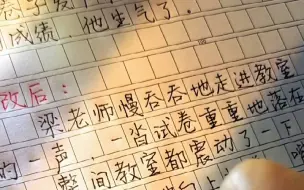 成绩，他生气了.
改后：
梁老师慢吞吞地走进教室
一沓试卷重重地落在
的一声，
整间教室都震动了一下